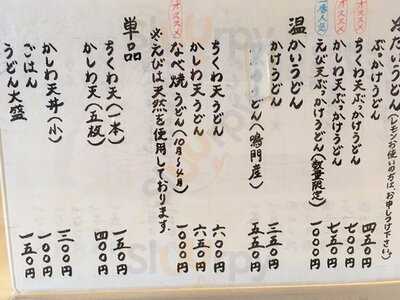 冷たいうどん(レモンお使いの方は、お申しつけ下さい。)
ぶっかけうどん 四五〇円
ちくわ天ぶっかけうどん 七〇〇円
オススメ かしわ天ぶっかけうどん 七五〇円
一番人気 えび天ぶっかけうどん(数量限定) 一〇〇〇円
温かいうどん
かけうどん 三五〇円
うどん(鳴門産) 五五〇円
ちくわ天うどん 六〇〇円
かしわ天うどん 六五〇円
オススメ なべ焼うどん(10月〜4月) 一〇〇〇円
※えびは天然を使用しております。
単品
ちくわ天(一本) 一五〇円
かしわ天(五枚) 四〇〇円
かしわ天丼(小) 三〇〇円
ごはん 一〇〇円
うどん大盛 一五〇円